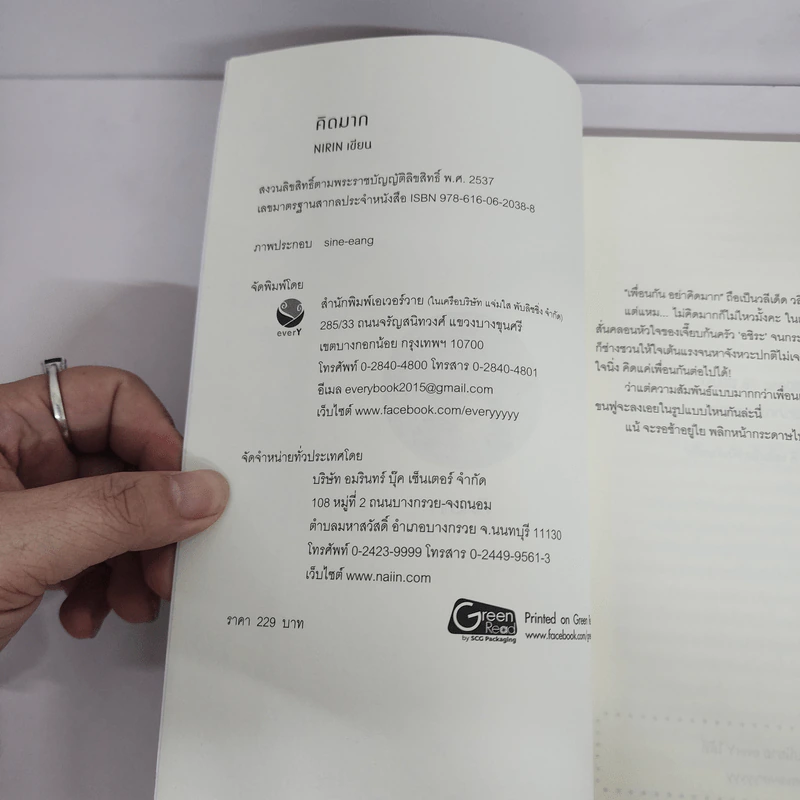 คิดมาก
NIRIN เขียน
สงวนลิขสิทธิ์ตามพระราชบัญญัติลิขสิทธิ์ พ.ศ. 2537
เลขมาตรฐานสากลประจำหนังสือ ISBN 978-616-06-2038-8
ภาพประกอบ sine-eang
จัดพิมพ์โดย
everY
สำนักพิมพ์เอเวอร์วาย (ในเครือบริษัท แจ่มใส พับลิชชิ่ง จำกัด)
285/33 ถนนจรัญสนิทวงศ์ แขวงบางขุนศรี
เขตบางกอกน้อย กรุงเทพฯ 10700
โทรศัพท์ 0-2840-4800 โทรสาร 0-2840-4801
อีเมล everybook2015@gmail.com
เว็บไซต์ www.facebook.com/everyyyyy
จัดจำหน่ายทั่วประเทศโดย
บริษัท อมรินทร์ บุ๊ค เซ็นเตอร์ จำกัด
108 หมู่ที่ 2 ถนนบางกรวย-จงถนอม
ตำบลมหาสวัสดิ์ อำเภอบางกรวย จ.นนทบุรี 11130
โทรศัพท์ 0-2423-9999 โทรสาร 0-2449-9561-3
เว็บไซต์ www.naiin.com
ราคา 229 บาท
Green
Read
by SCG Packaging
Printed on Green
www.facebook.com
"เพื่อนกัน อย่าคิดมาก" ถือเป็นวลีเด็ด
แต่แหม... ไม่คิดมากก็ไม่ไหวมั้งคะ
สั่นคลอนหัวใจของเจี๊ยบกันครัว 'อชิระ'
ก็ช่างชวนให้ใจเต้นแรงจนหาจังหวะปกติไม่
ใจนิ่ง คิดแค่เพื่อนกันต่อไปได้!
ว่าแต่ความสัมพันธ์แบบมากกว่าเพื่อน
ขนฟูจะลงเอยในรูปแบบไหนกันล่ะนี่
แน้ จะรอช้าอยู่ไย พลิกหน้ากระดาษ